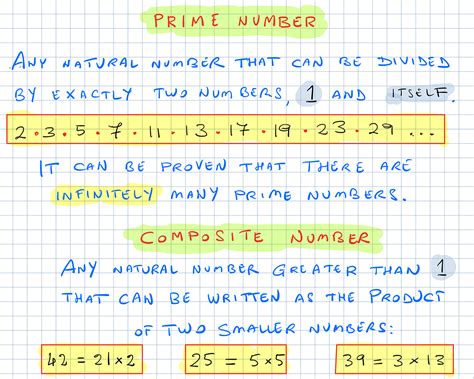 PRIME NUMBER
ANY NATURAL NUMBER THAT CAN BE DIVIDED
BY EXACTLY TWO NUMBERS, 1 AND ITSELF.
2 • 3 • 5 • 7 • 11 • 13 • 17 • 19 • 23 • 29 ...
IT CAN BE PROVEN THAT THERE ARE
INFINITELY MANY PRIME NUMBERS.
COMPOSITE NUMBER
ANY NATURAL NUMBER GREATER THAN 1
THAT CAN BE WRITTEN AS THE PRODUCT
OF TWO SMALLER NUMBERS:
42 = 21×2 25 = 5×5 39 = 3×13